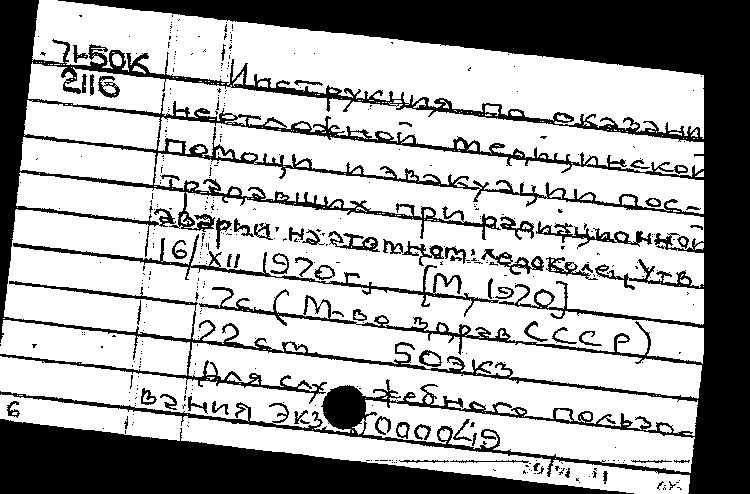 71-50К
2116
Инструкция по оказани
неотложной медицинской
помощи и эвакуации пос-
традавших при радиационной
аварии на атомном ледоколе. Утв.
16/XII 1970 г. [М, 1970]
7с. (М-во здрав СССР)
22 см. 50 экз.
Для служебного пользо-
вания Экз. 000049
6